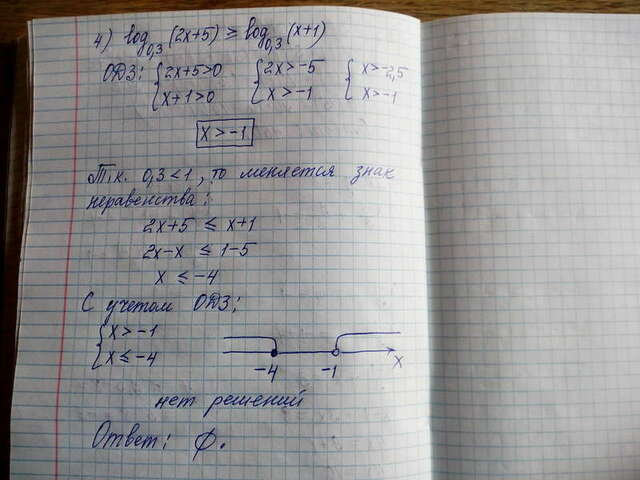 4) log₀,₃(2x+5) ≥ log₀,₃(x+1)
ОДЗ: { 2x+5>0 { 2x>-5 { x>-2,5
x+1>0 x>-1 x>-1
x>-1
Т.к. 0,3<1, то меняется знак
неравенства:
2x+5 ≤ x+1
2x-x ≤ 1-5
x ≤ -4
С учетом ОДЗ:
{ x>-1
x≤-4
-4 -1 x
нет решений
Ответ: ∅.